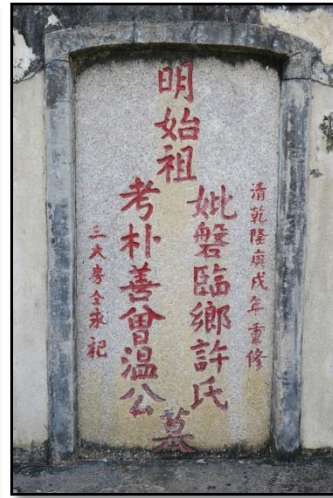 清乾隆庚戌年重修
明始祖
妣磐臨鄉許氏
考朴善曾温公
墓
三大房仝永祀